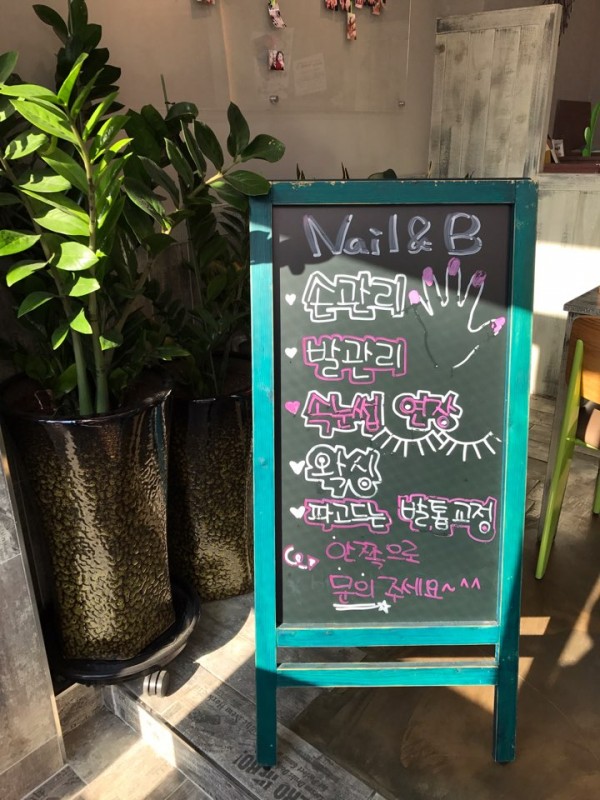 Nail & B
손관리
발관리
속눈썹 연장
왁싱
파고드는 발톱교정
안쪽으로
문의 주세요~^^